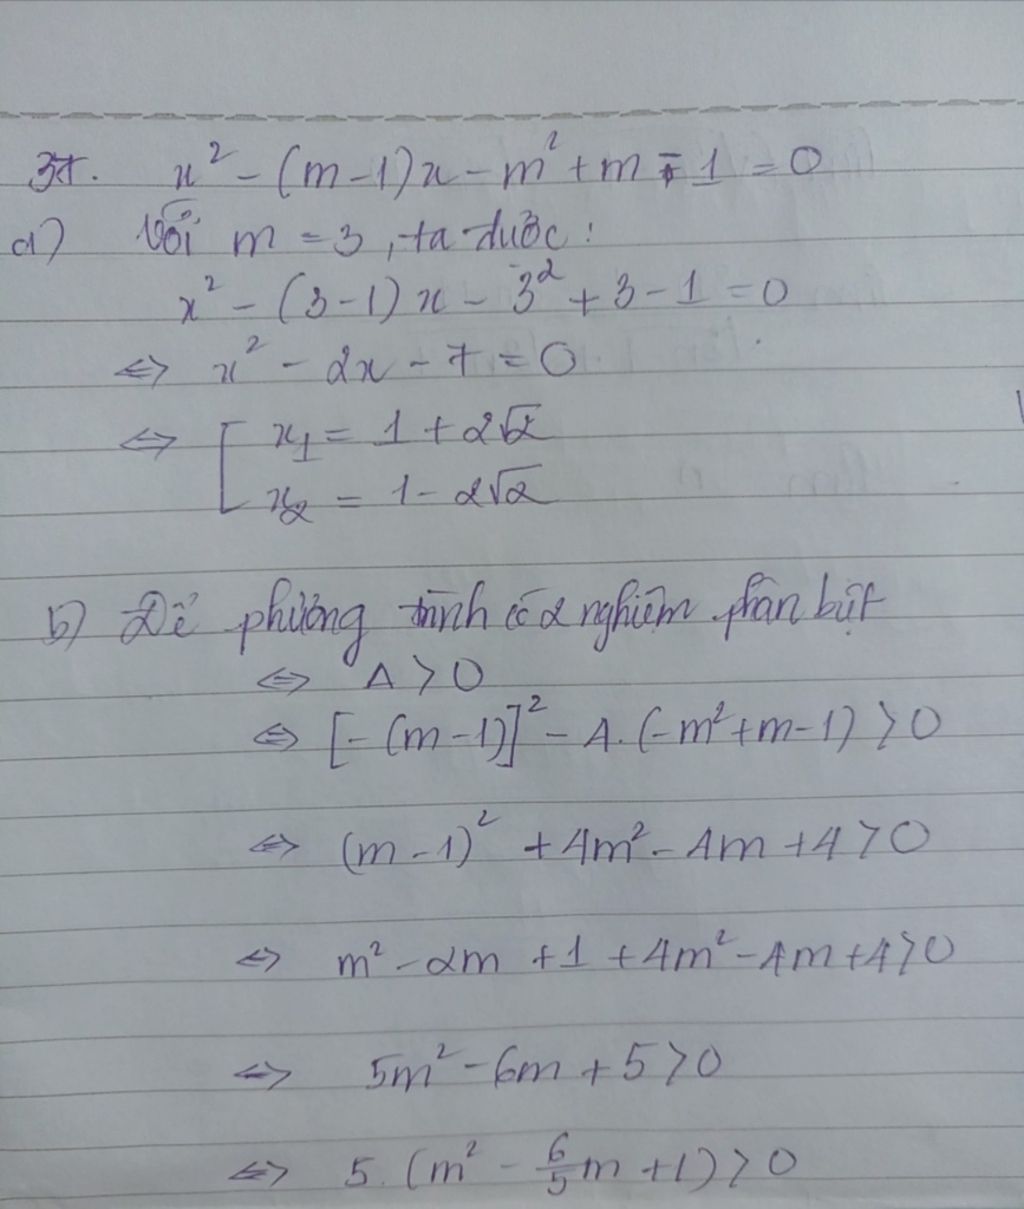 37. x² - (m-1)x - m² + m - 1 = 0
a) Với m = 3, ta được:
x² - (3-1)x - 3² + 3 - 1 = 0
<=> x² - 2x - 7 = 0
<=> [ x₁ = 1 + 2√2
x₂ = 1 - 2√2
b) Để phương trình có 2 nghiệm phân biệt
<=> Δ > 0
<=> [-(m-1)]² - 4.(-m²+m-1) > 0
<=> (m-1)² + 4m² - 4m + 4 > 0
<=> m² - 2m + 1 + 4m² - 4m + 4 > 0
<=> 5m² - 6m + 5 > 0
<=> 5.(m² - 6/5m + 1) > 0